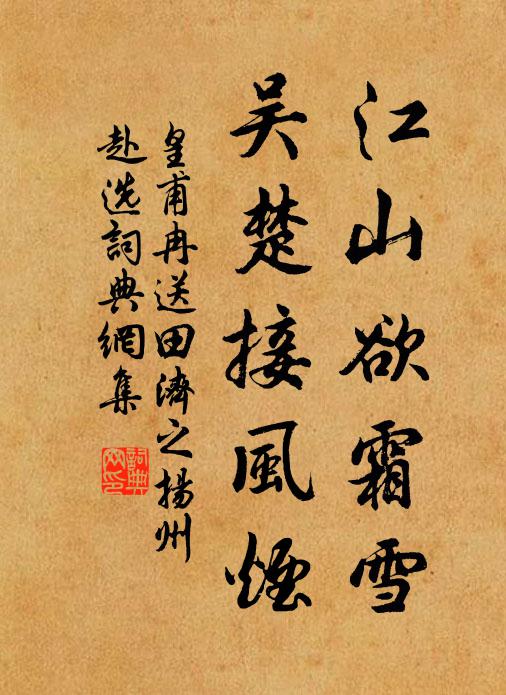 江山欲霜雪
吴楚接風煙
皇甫冉送田濟之揚州
赴选詞典網集
詞典網印